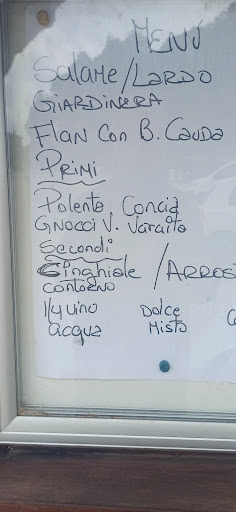 Menú
Salame/Lardo
Giardinera
Flan con B. Cauda
Primi
Polenta Concia
Gnocci V. Varaita
Secondi
Cinghiale /Arros
contorno
1/4 vino Dolce
acqua Misto